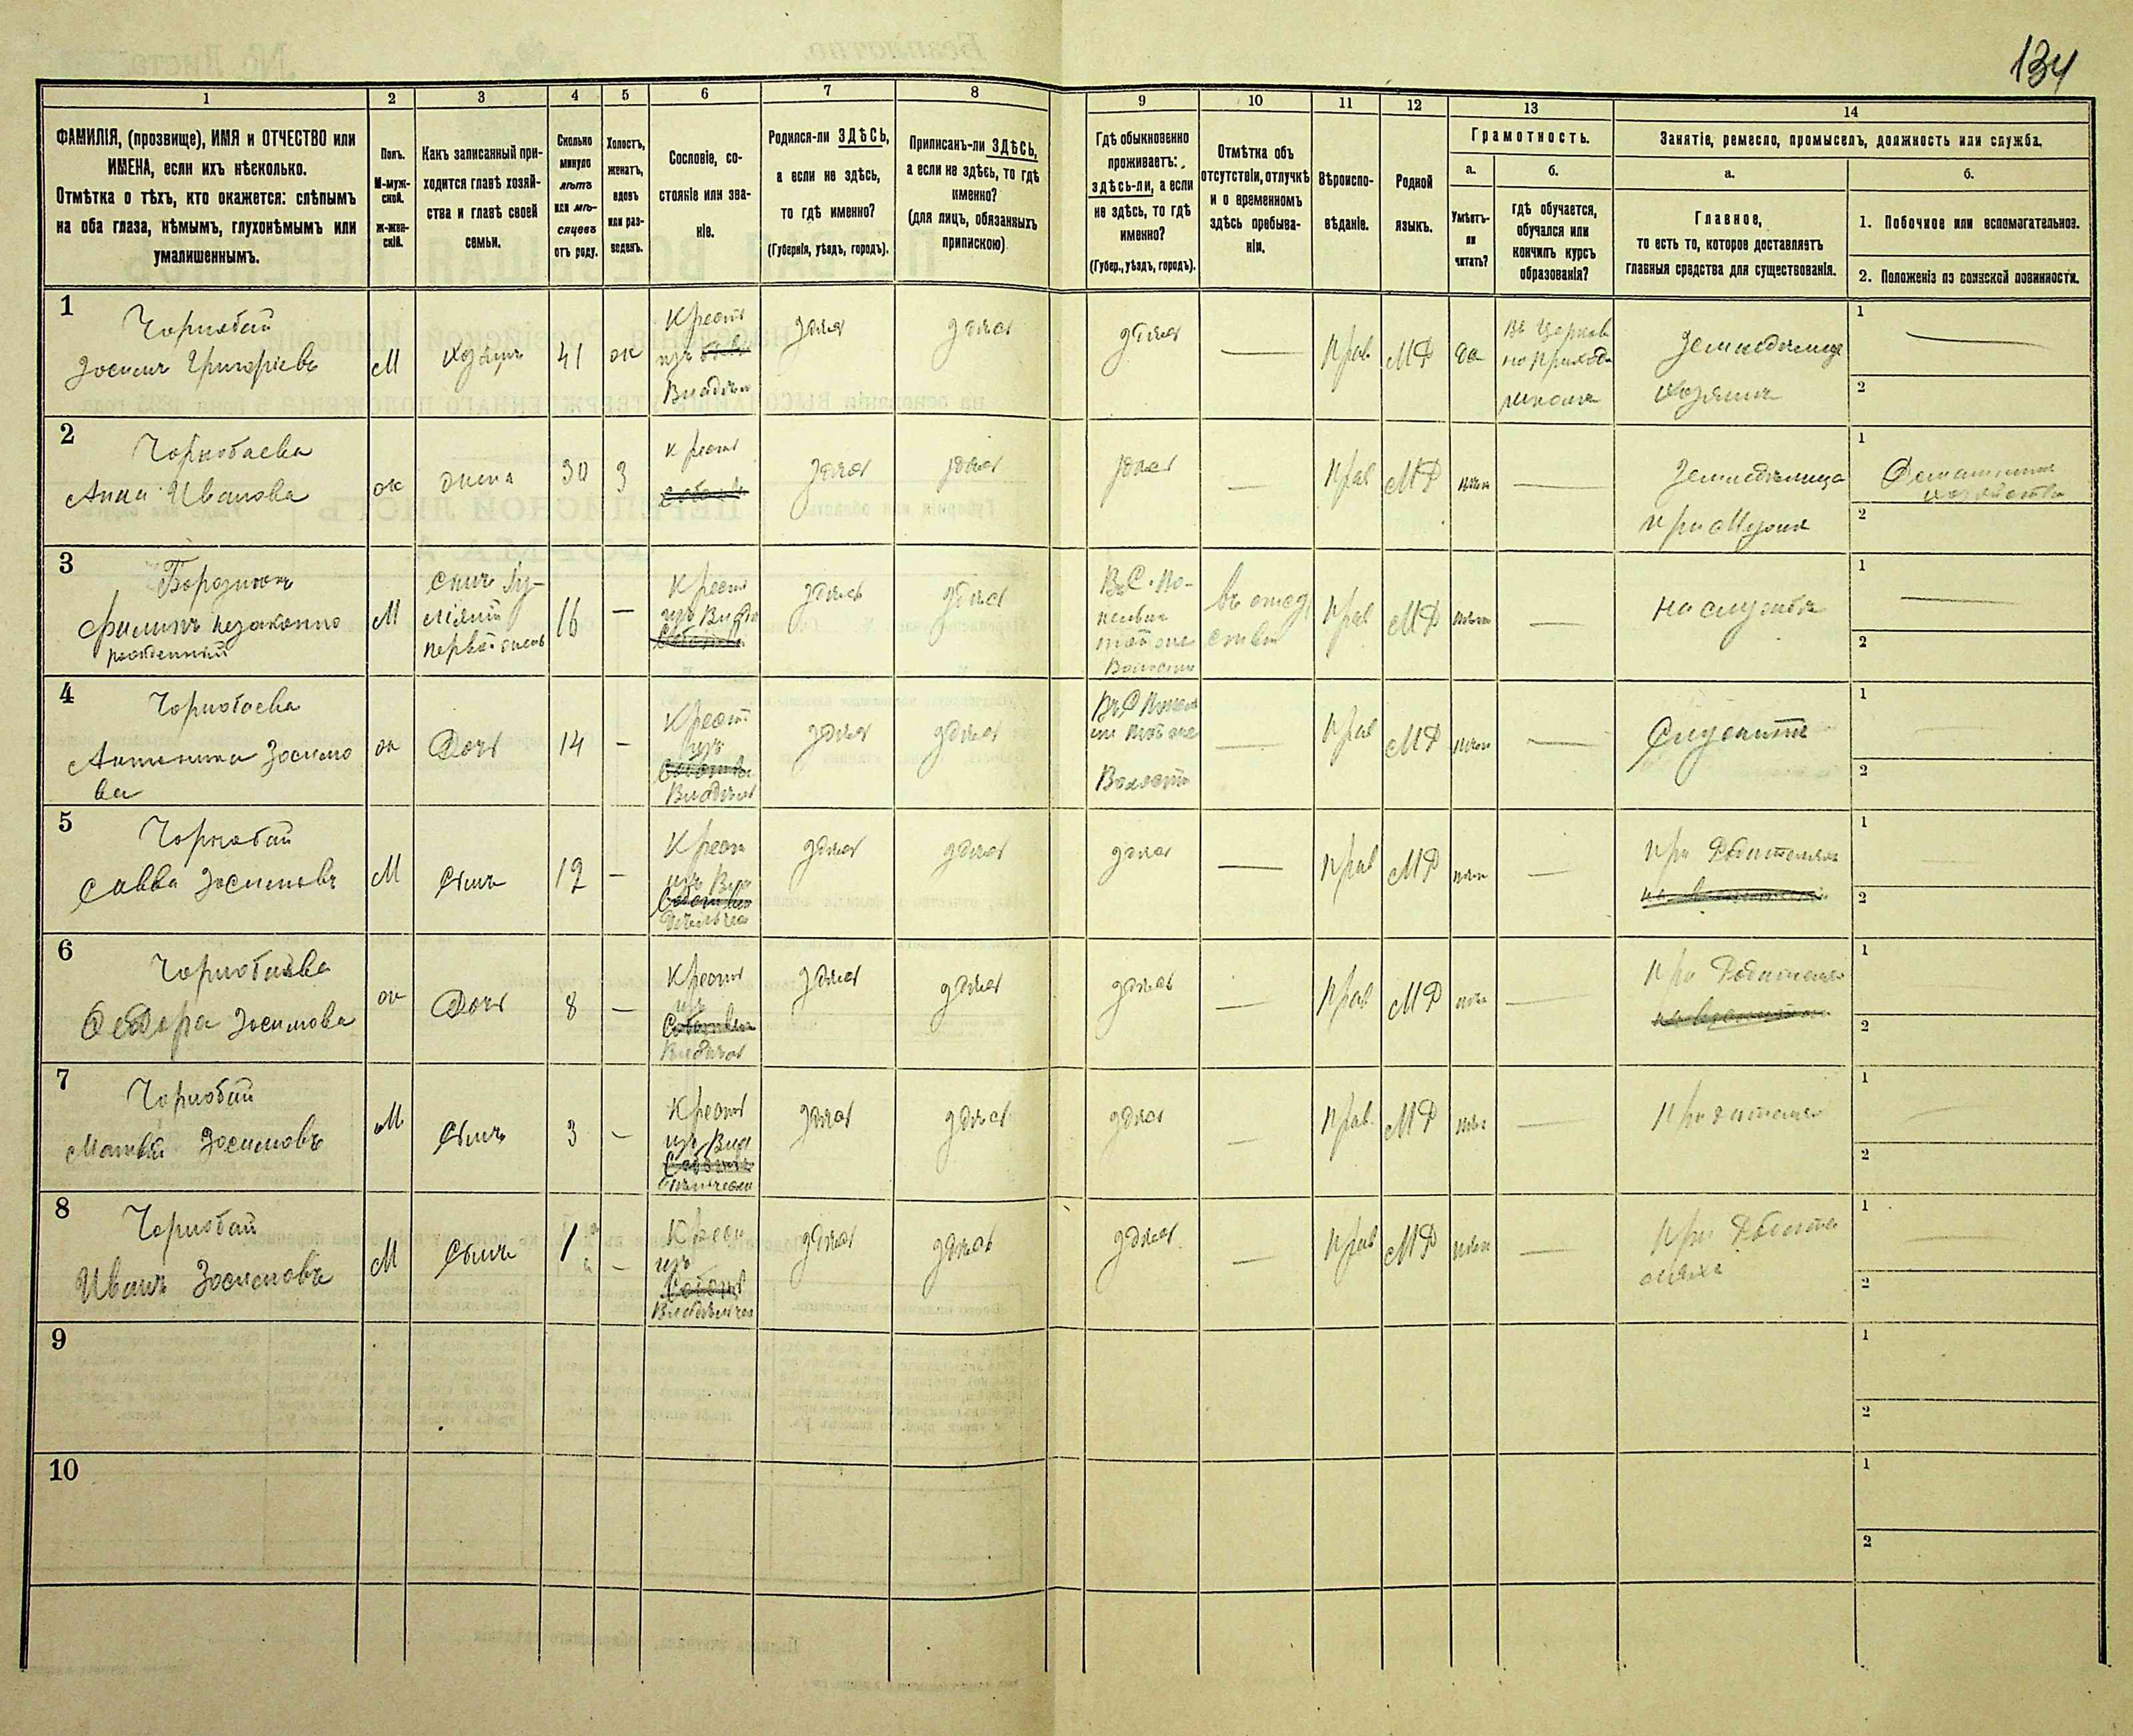 134
1
2
3
4
5
6
7
8
9
10
11
12
13
14
ФАМИЛІЯ, (прозвище), ИМЯ и ОТЧЕСТВО или
ИМЕНА, если ихъ нѣсколько.
Отмѣтка о тѣхъ, кто окажется: слѣпымъ
на оба глаза, нѣмымъ, глухонѣмымъ или
умалишеннымъ.
Полъ.
М-муж-
ской.
Ж-жен-
скій.
Какъ записанный при-
ходится главѣ хозяй-
ства и главѣ своей
семьи.
Сколько
минуло
лѣтъ
или мѣ-
сяцевъ
отъ роду.
Холостъ,
женатъ,
вдовъ
или раз-
веденъ.
Сословіе, со-
стояніе или зва-
ніе.
Родился-ли ЗДѢСЬ,
а если не здѣсь,
то гдѣ именно?
(Губернія, уѣздъ, городъ).
Приписанъ-ли ЗДѢСЬ,
а если не здѣсь, то гдѣ
именно?
(для лицъ, обязанныхъ
припискою)
Гдѣ обыкновенно
проживаетъ:
здѣсь-ли, а если
не здѣсь, то гдѣ
именно?
(Губер., уѣздъ, городъ).
Отмѣтка объ
отсутствіи, отлучкѣ
и о временномъ
здѣсь пребыва-
ніи.
Вѣроиспо-
вѣданіе.
Родной
языкъ.
Грамотность.
а.
Умѣетъ-
ли
читать?
б.
гдѣ обучается,
обучался или
кончилъ курсъ
образованія?
Занятіе, ремесло, промыселъ, должность или служба.
а.
Главное,
то есть то, которое доставляетъ
главныя средства для существованія.
б.
1. Побочное или вспомогательное.
2. Положеніе по воинской повинности.
1
Чорнобай
Зосимъ Григоріевъ
М
хозяинъ
41
ж
Крест
изъ
Владѣл
здѣсь
здѣсь
здѣсь
—
Прав
МР
да
въ Церков
но приход
школѣ
Земледѣлецъ
хозяинъ
1
—
2
2
Чорнобаева
Анна Иванова
ж
жена
30
з
крест
здѣсь
здѣсь
здѣсь
—
Прав
МР
—
Земледѣлица
при Мужѣ
1
Домашнее
хозяйство
2
3
Филипъ незаконно
рожденный
М
первой жены
16
—
Крест
здѣсь
здѣсь
Волости
Прав
МР
—
на службѣ
1
—
2
4
Чорнобаева
Зосимо
ва
ж
Дочь
14
—
Крест
изъ
Владѣл
здѣсь
здѣсь
Волости
—
Прав
МР
—
1
2
5
Чорнобай
Савва Зосимовъ
М
Сынъ
12
—
Крест
здѣсь
здѣсь
здѣсь
—
Прав
МР
—
при Родителях
1
2
6
Чорнобаева
Федора Зосимова
ж
Дочь
8
—
Крест
изъ
здѣсь
здѣсь
здѣсь
—
Прав
МР
—
при Родителях
1
2
7
Чорнобай
Матвѣй Зосимовъ
М
Сынъ
3
—
Крест
здѣсь
здѣсь
здѣсь
—
Прав
МР
—
1
2
8
Чорнобай
Иванъ Зосимовъ
М
Сынъ
1
—
Крест
изъ
здѣсь
здѣсь
здѣсь
—
Прав
МР
—
При Родите
1
2
9
1
2
10
1
2